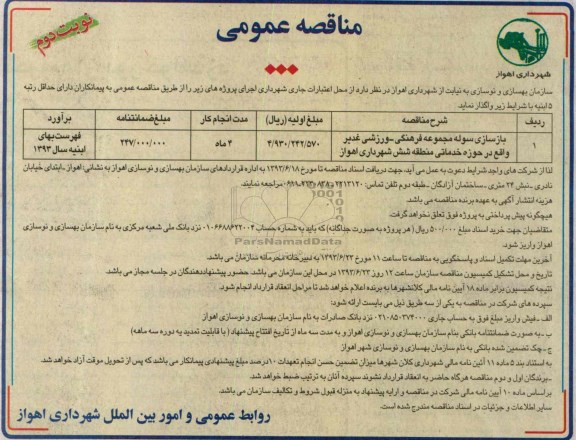 نوبت دوم
مناقصه عمومی
شهرداری اهواز
سازمان بهسازی و نوسازی به نیابت از شهرداری اهواز در نظر دارد از محل اعتبارات جاری شهرداری اجرای پروژه های زیر را از طریق مناقصه عمومی به پیمانکاران دارای حداقل رتبه
۵ ابنیه با شرایط زیر واگذار نماید.
ردیف شرح مناقصه مبلغ اولیه (ریال) مدت انجام کار مبلغ ضمانتنامه برآورد
۱ بازسازی سوله مجموعه فرهنگی-ورزشی غدیر واقع در حوزه خدماتی منطقه شش شهرداری اهواز ۴/۹۳۰/۲۴۲/۵۷۰ ۴ ماه ۲۴۷/۰۰۰/۰۰۰ فهرست بهای ابنیه سال ۱۳۹۳
لذا از شرکت های واجد شرایط دعوت به عمل می آید، جهت دریافت اسناد مناقصه تا مورخ ۱۳۹۳/۶/۱۸ به اداره قراردادهای سازمان بهسازی و نوسازی اهواز به نشانی: اهواز-ابتدای خیابان
نادری - نبش ۲۴ متری - ساختمان آزادگان - طبقه دوم تلفن تماس: مراجعه نمایند
هزینه انتشار آگهی به عهده برنده مناقصه می باشد.
هیچگونه پیش پرداختی به پروژه فوق تعلق نخواهد گرفت.
متقاضیان جهت خرید اسناد مبلغ ۵۰۰/۰۰۰ ریال ( هر پروژه به صورت جداگانه) که باید به شماره حساب ۰۱۰۶۶۸۸۶۲۲۰۰۴ نزد بانک ملی شعبه مرکزی به نام سازمان بهسازی و نوسازی
اهواز واریز شود.
ParsNamadData
آخرین مهلت تکمیل اسناد و پاسخگویی به مناقصه تا ساعت ۱۱ مورخ ۱۳۹۳/۶/۲۳ به دبیرخانه محرمانه سازمان می باشد.
تاریخ و محل تشکیل کمیسیون مناقصه سازمان ساعت ۱۲ روز ۱۳۹۳/۶/۲۳ در محل این سازمان می باشد. حضور پیشنهاددهندگان در جلسه مجاز می باشد.
نتیجه کمیسیون برابر ماده ۱۸ آیین نامه مالی کلانشهرها به برنده اعلام خواهد شد تا مراحل انعقاد قرارداد انجام شود.
سپرده های شرکت در مناقصه به یکی از سه طریق ذیل می بایست ارائه شود:
الف -فیش واریز مبلغ فوق به حساب جاری نزد بانک صادرات به نام سازمان بهسازی و نوسازی اهواز
ب -به صورت ضمانتنامه بانکی بنام سازمان بهسازی و نوسازی اهواز و به مدت سه ماه از تاریخ افتتاح پیشنهاد ( با قابلیت تمدید به دوره سه ماهه)
ج -چک تضمین شده بانکی به نام سازمان بهسازی و نوسازی شهر اهواز
به استناد بند ۵ ماده ۱۱ آئین نامه مالی شهرداری کلان شهرها میزان تضمین حسن انجام تعهدات ۱۰درصد مبلغ پیشنهادی پیمانکار می باشد که پس از تحویل موقت آزاد خواهد شد.
-برندگان اول و دوم مناقصه هرگاه حاضر به انعقاد قرارداد نشوند سپرده آنان به ترتیب ضبط خواهد شد.
براساس ماده ۱۰ آیین نامه مالی شرکت در مناقصه و ارایه پیشنهاد به منزله قبول شروط و تکالیف سازمان می باشد.
سایر اطلاعات و جزئیات در اسناد مناقصه مندرج شده است.
روابط عمومی و امور بین الملل شهرداری اهواز